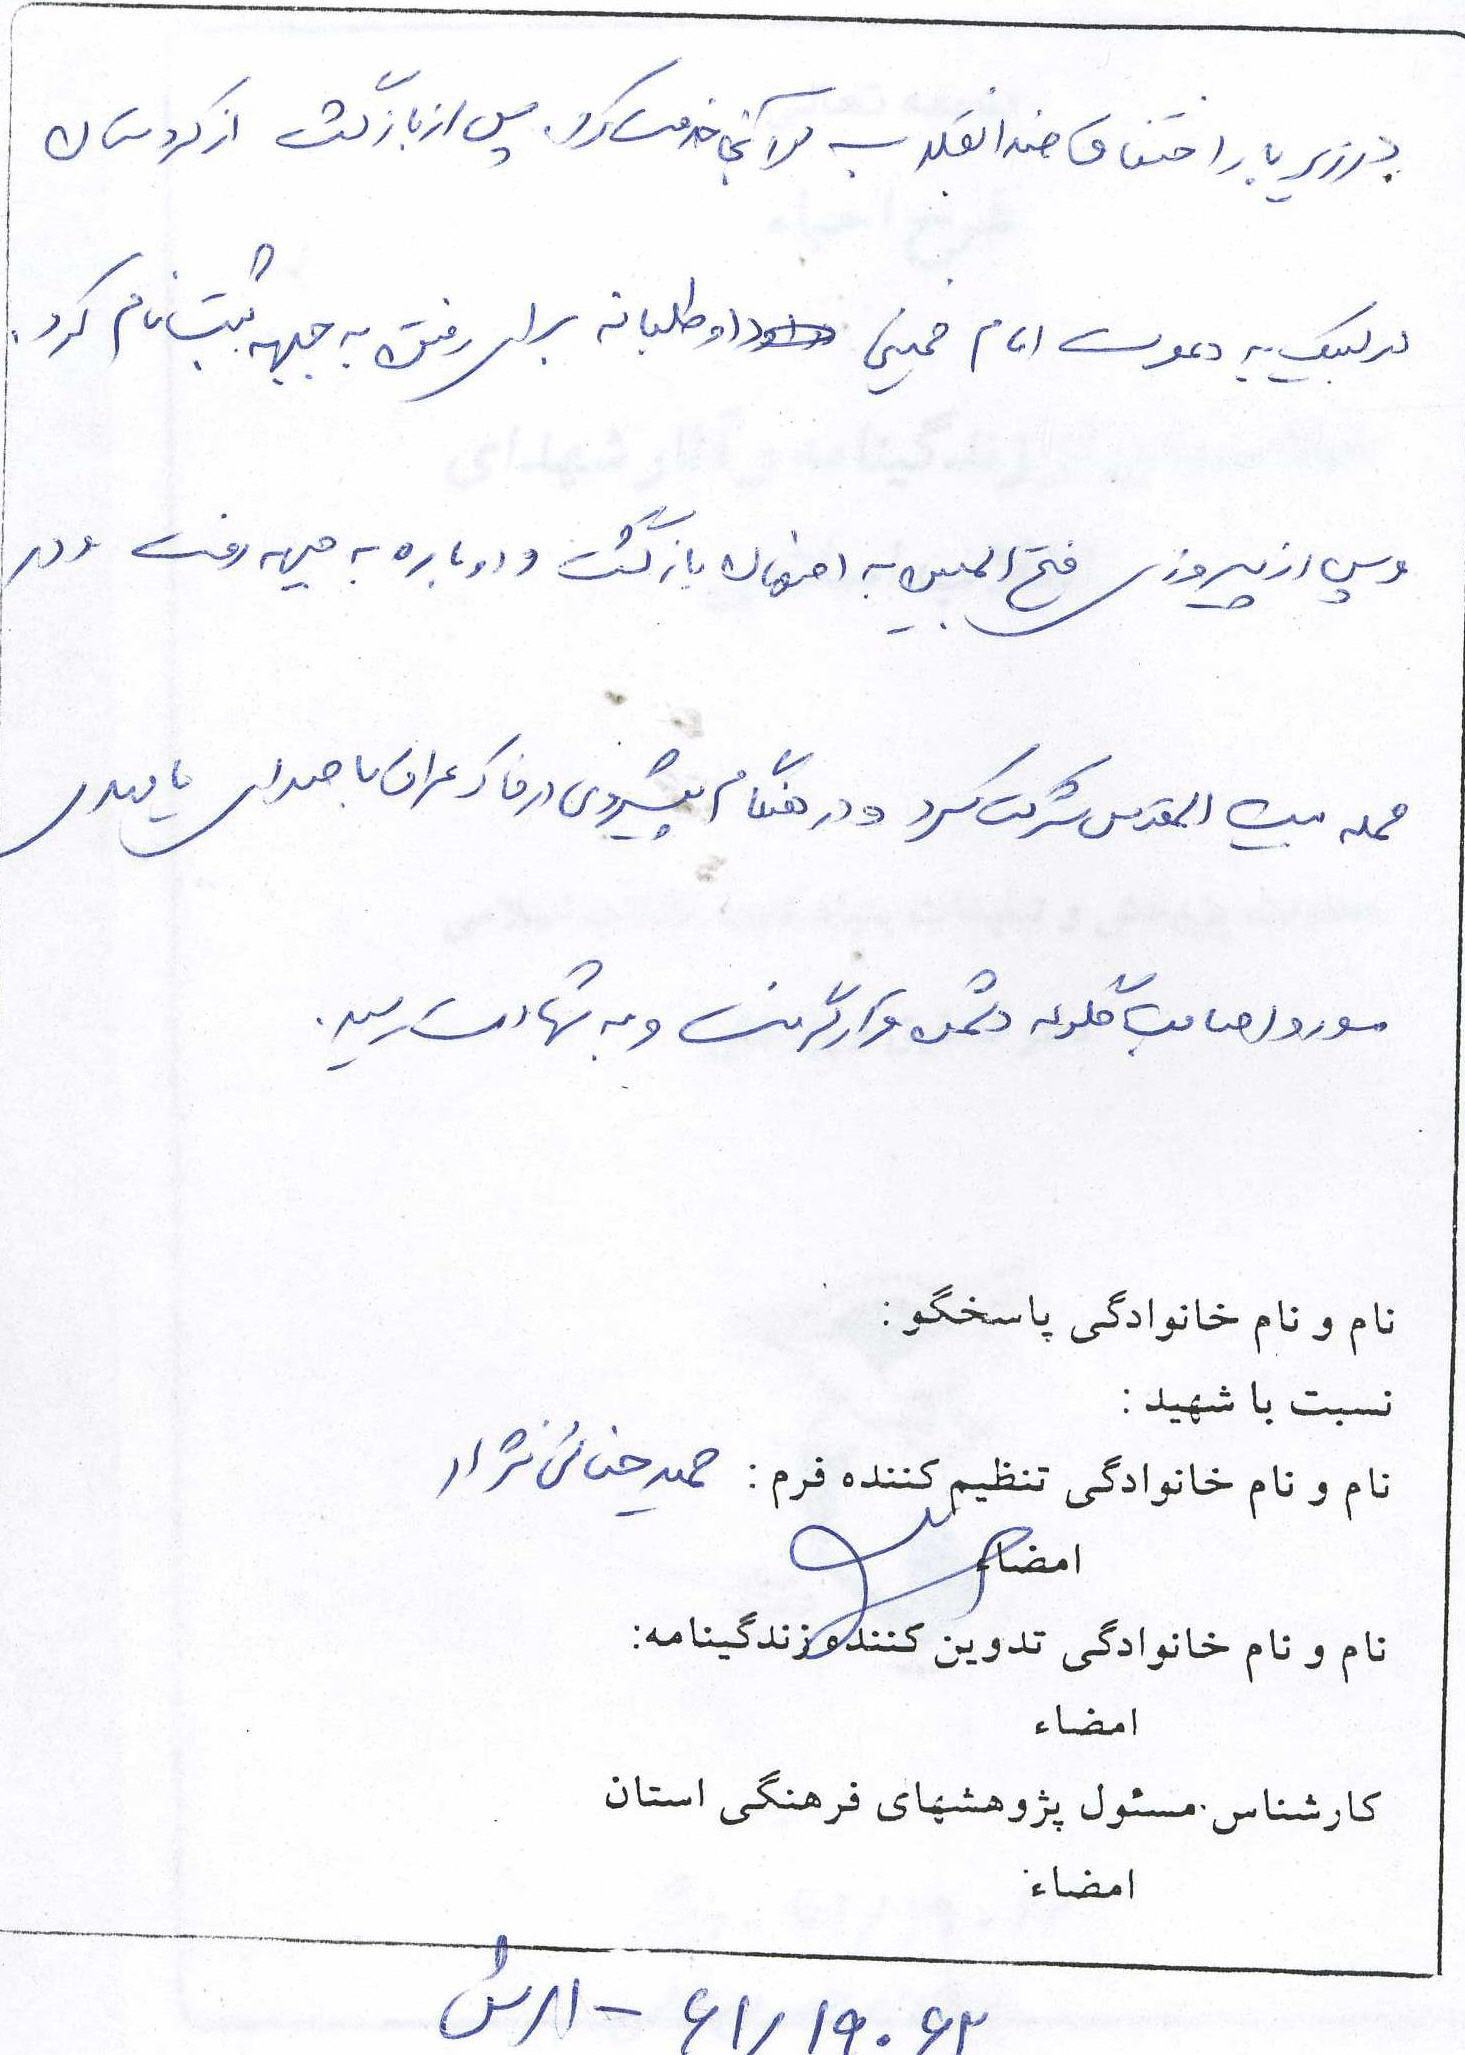 در زیر بار اختناق ضد انقلاب در آنجا خدمت کرد. پس از بازگشت از کردستان
در لبیک به دعوت امام خمینی داوطلبانه برای رفتن به جبهه ثبت نام کرد.
و پس از پیروزی فتح المبین به اصفهان بازگشت و دوباره به جبهه رفت و در
حمله بیت المقدس شرکت کرد و در هنگام پیشروی در خاک عراق با صدای یا مهدی
مورد اصابت گلوله دشمن قرار گرفت و به شهادت رسید.
نام و نام خانوادگی پاسخگو :
نسبت با شهید :
نام و نام خانوادگی تنظیم کننده فرم : حمید حنائی نژاد
امضاء
نام و نام خانوادگی تدوین کننده زندگینامه:
امضاء
کارشناس مسئول پژوهشهای فرهنگی استان
امضاء
۶۱/۱۹۰۶۲ - ارتش